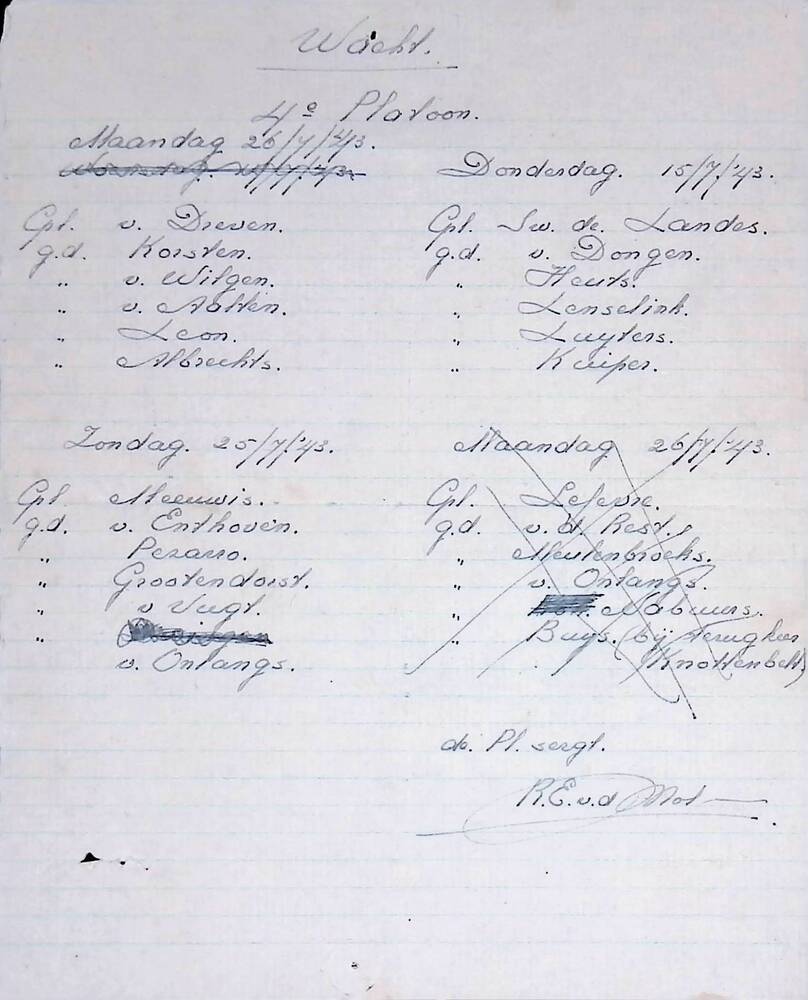 Wacht.
4e Platoon.
Maandag 26/7/'43.
Donderdag. 15/7/'43.
Cpl. v. Dreven.
g.d. Korsten.
" v. Wilgen.
" v. Aalten.
" Leon.
" Albrechts.
Cpl. Sw. de. Landes.
g.d. v. Dongen.
" Heuts.
" Lenselink.
" Luyters.
" Kuiper.
Zondag. 25/7/'43.
Cpl. Meeuwis.
g.d. v. Enthoven.
" Pezarro.
" Grootendorst.
" v Vugt.
"
v. Onlangs.
Maandag 26/7/'43.
Cpl. Lefevre.
g.d. v.d. Rest.
" Meulenbroeks.
" v. Onlangs.
" Nabuurs.
" Buys. (bij terugkeer
Knottenbelt)
de. Pl. sergt.
R.E.v.d Mot